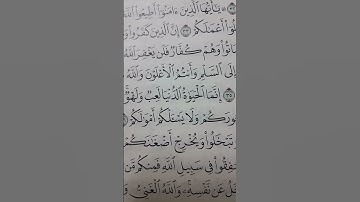 يَٰٓأَيُّهَا ٱلَّذِينَ ءَامَنُوٓا۟ أَطِيعُوا۟ ٱللَّهَ
أَعْمَٰلَكُمْ ٣٣ إِنَّ ٱلَّذِينَ كَفَرُوا۟
مَاتُوا۟ وَهُمْ كُفَّارٌ فَلَن يَغْفِرَ ٱللَّهُ
إِلَى ٱلسَّلْمِ وَأَنتُمُ ٱلْأَعْلَوْنَ وَٱللَّهُ
٣٥ إِنَّمَا ٱلْحَيَوٰةُ ٱلدُّنْيَا لَعِبٌ وَلَهْوٌ
وَلَا يَسْـَٔلْكُمْ أَمْوَٰلَكُمْ
تَبْخَلُوا۟ وَيُخْرِجْ أَضْغَٰنَكُمْ
فِى سَبِيلِ ٱللَّهِ فَمِنكُم مَّن
عَن نَّفْسِهِۦ وَٱللَّهُ ٱلْغَنِىُّ